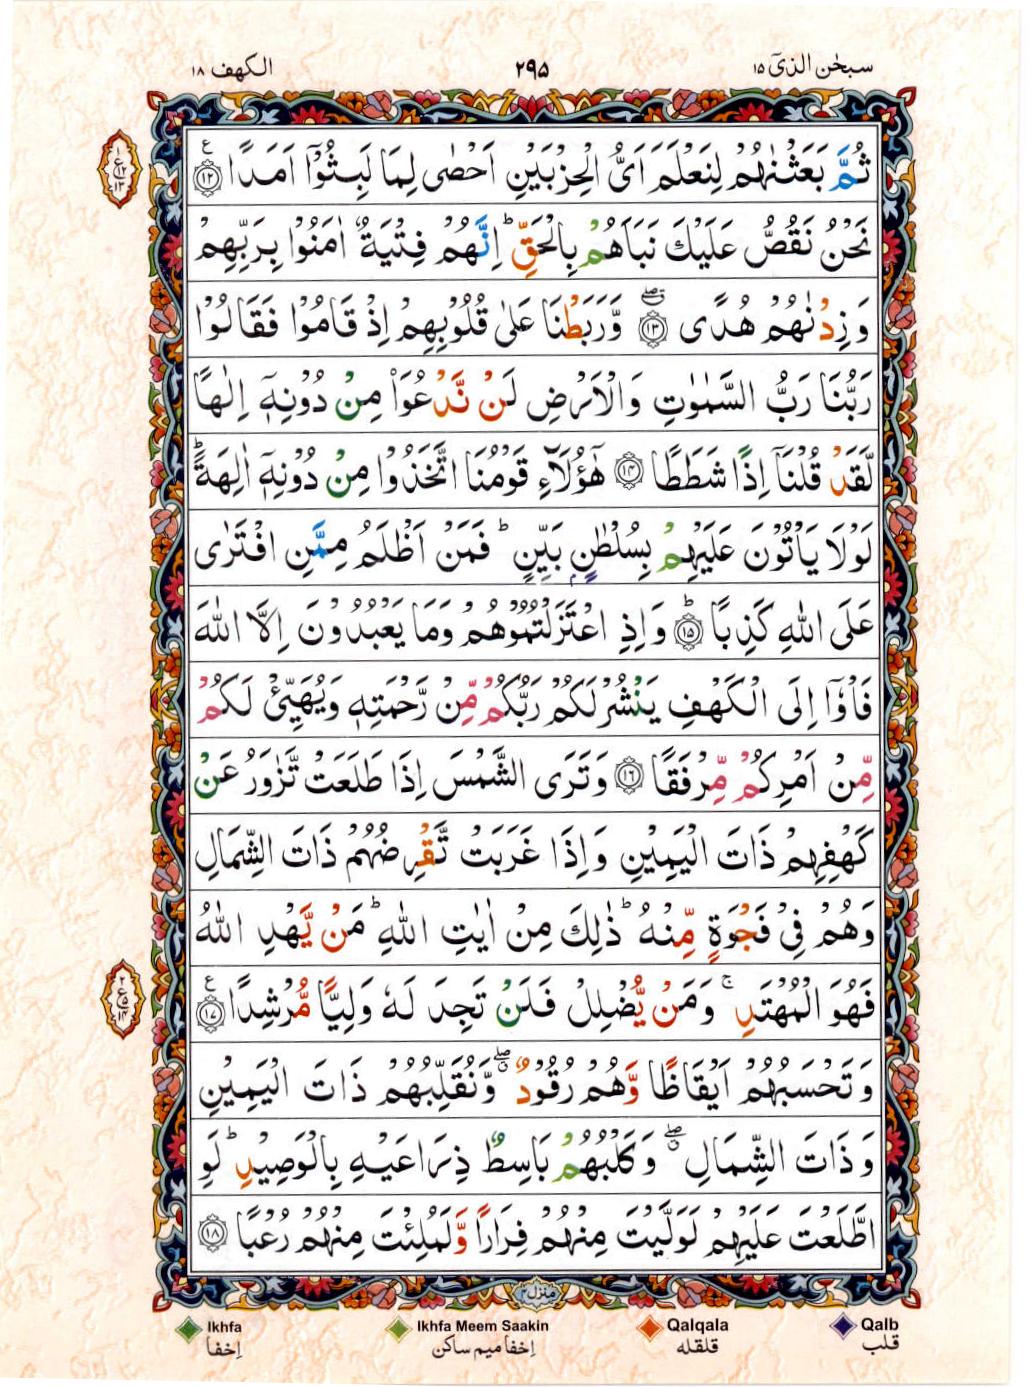 سبحٰن الذیٓ ۱۵
۲۹۵
الکهف ۱۸
ثُمَّ بَعَثْنٰهُمْ لِنَعْلَمَ اَیُّ الْحِزْبَیْنِ اَحْصٰی لِمَا لَبِثُوْۤا اَمَدًا ۱۲ ع
نَحْنُ نَقُصُّ عَلَیْكَ نَبَاَهُمْ بِالْحَقِّ ؕ اِنَّهُمْ فِتْیَةٌ اٰمَنُوْا بِرَبِّهِمْ
وَ زِدْنٰهُمْ هُدًی ۱۳ وَّ رَبَطْنَا عَلٰی قُلُوْبِهِمْ اِذْ قَامُوْا فَقَالُوْا
رَبُّنَا رَبُّ السَّمٰوٰتِ وَ الْاَرْضِ لَنْ نَّدْعُوَاۡ مِنْ دُوْنِهٖۤ اِلٰهًا
لَّقَدْ قُلْنَاۤ اِذًا شَطَطًا ۱۴ هٰۤؤُلَآءِ قَوْمُنَا اتَّخَذُوْا مِنْ دُوْنِهٖۤ اٰلِهَةً ؕ
لَوْ لَا یَاْتُوْنَ عَلَیْهِمْ بِسُلْطٰنٍۭ بَیِّنٍ ؕ فَمَنْ اَظْلَمُ مِمَّنِ افْتَرٰی
عَلَی اللّٰهِ كَذِبًا ؕ ۱۵ وَ اِذِ اعْتَزَلْتُمُوْهُمْ وَ مَا یَعْبُدُوْنَ اِلَّا اللّٰهَ
فَاْوٗۤا اِلَی الْكَهْفِ یَنْشُرْ لَكُمْ رَبُّكُمْ مِّنْ رَّحْمَتِهٖ وَ یُهَیِّئْ لَكُمْ
مِّنْ اَمْرِكُمْ مِّرْفَقًا ۱۶ وَ تَرَی الشَّمْسَ اِذَا طَلَعَتْ تَّزٰوَرُ عَنْ
كَهْفِهِمْ ذَاتَ الْیَمِیْنِ وَ اِذَا غَرَبَتْ تَّقْرِضُهُمْ ذَاتَ الشِّمَالِ
وَ هُمْ فِیْ فَجْوَةٍ مِّنْهُ ؕ ذٰلِكَ مِنْ اٰیٰتِ اللّٰهِ ؕ مَنْ یَّهْدِ اللّٰهُ
فَهُوَ الْمُهْتَدِ ۚ وَ مَنْ یُّضْلِلْ فَلَنْ تَجِدَ لَهٗ وَلِیًّا مُّرْشِدًا ۱۷ ع
وَ تَحْسَبُهُمْ اَیْقَاظًا وَّ هُمْ رُقُوْدٌ ۖۗ وَّ نُقَلِّبُهُمْ ذَاتَ الْیَمِیْنِ
وَ ذَاتَ الشِّمَالِ ۖۗ وَ كَلْبُهُمْ بَاسِطٌ ذِرَاعَیْهِ بِالْوَصِیْدِ ؕ لَوِ
اطَّلَعْتَ عَلَیْهِمْ لَوَلَّیْتَ مِنْهُمْ فِرَارًا وَّ لَمُلِئْتَ مِنْهُمْ رُعْبًا ۱۸
منزل۴
Ikhfa Ikhfa Meem Saakin Qalqala Qalb
قلب قلقله اِخفا میم ساکن اِخفا